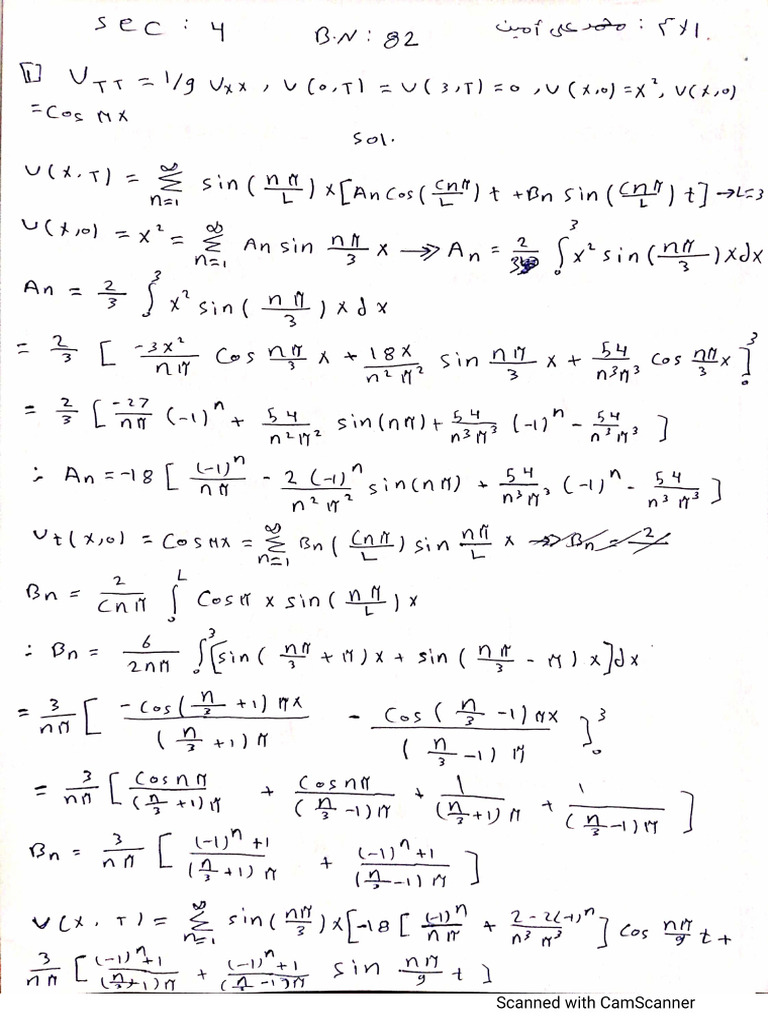 sec : 4 B.N : 82 محمد على امين : ٣٨١
[1] U_TT = 1/9 U_xx , U(0,T) = U(3,T) = 0 , U(x,0) = x², U(x,0)
= cos πx
sol.
U(x,T) = Σ_{n=1}^{∞} sin(nπ/L) x [An cos(cnπ/L) t + Bn sin(cnπ/L) t] → L=3
U(x,0) = x² = Σ_{n=1}^{∞} An sin nπ/3 x →> An = 2/3 ∫_0^3 x² sin(nπ/3) x dx
An = 2/3 ∫_0^3 x² sin(nπ/3) x dx
= 2/3 [ -3x²/nπ cos nπ/3 x + 18x/n²π² sin nπ/3 x + 54/n³π³ cos nπ/3 x ]_0^3
= 2/3 [ -27/nπ (-1)^n + 54/n²π² sin(nπ) + 54/n³π³ (-1)^n - 54/n³π³ ]
∴ An = -18 [ (-1)^n/nπ - 2(-1)^n/n²π² sin(nπ) + 54/n³π³ (-1)^n - 54/n³π³ ]
Ut(x,0) = cos πx = Σ_{n=1}^{∞} Bn (cnπ/L) sin nπ/L x →> Bn = 2/
Bn = 2/cnπ ∫_0^L cos π x sin(nπ/L) x
∴ Bn = 6/2nπ ∫_0^3 [sin(nπ/3 + π) x + sin(nπ/3 - π) x] dx
= 3/nπ [ -cos(n/3 + 1) πx/(n/3 + 1) π - cos(n/3 - 1) πx/(n/3 - 1) π ]_0^3
= 3/nπ [ cos nπ/(n/3 + 1) π + cos nπ/(n/3 - 1) π + 1/(n/3 + 1) π + 1/(n/3 - 1) π ]
Bn = 3/nπ [ (-1)^n + 1/(n/3 + 1) π + (-1)^n + 1/(n/3 - 1) π ]
U(x,T) = Σ_{n=1}^{∞} sin(nπ/3) x [-18 [ (-1)^n/nπ + 2-2(-1)^n/n³π³ ] cos nπ/9 t +
3/nπ [ (-1)^n + 1/(n/3 + 1) π + (-1)^n + 1/(n/3 - 1) π sin nπ/9 t ]
Scanned with CamScanner